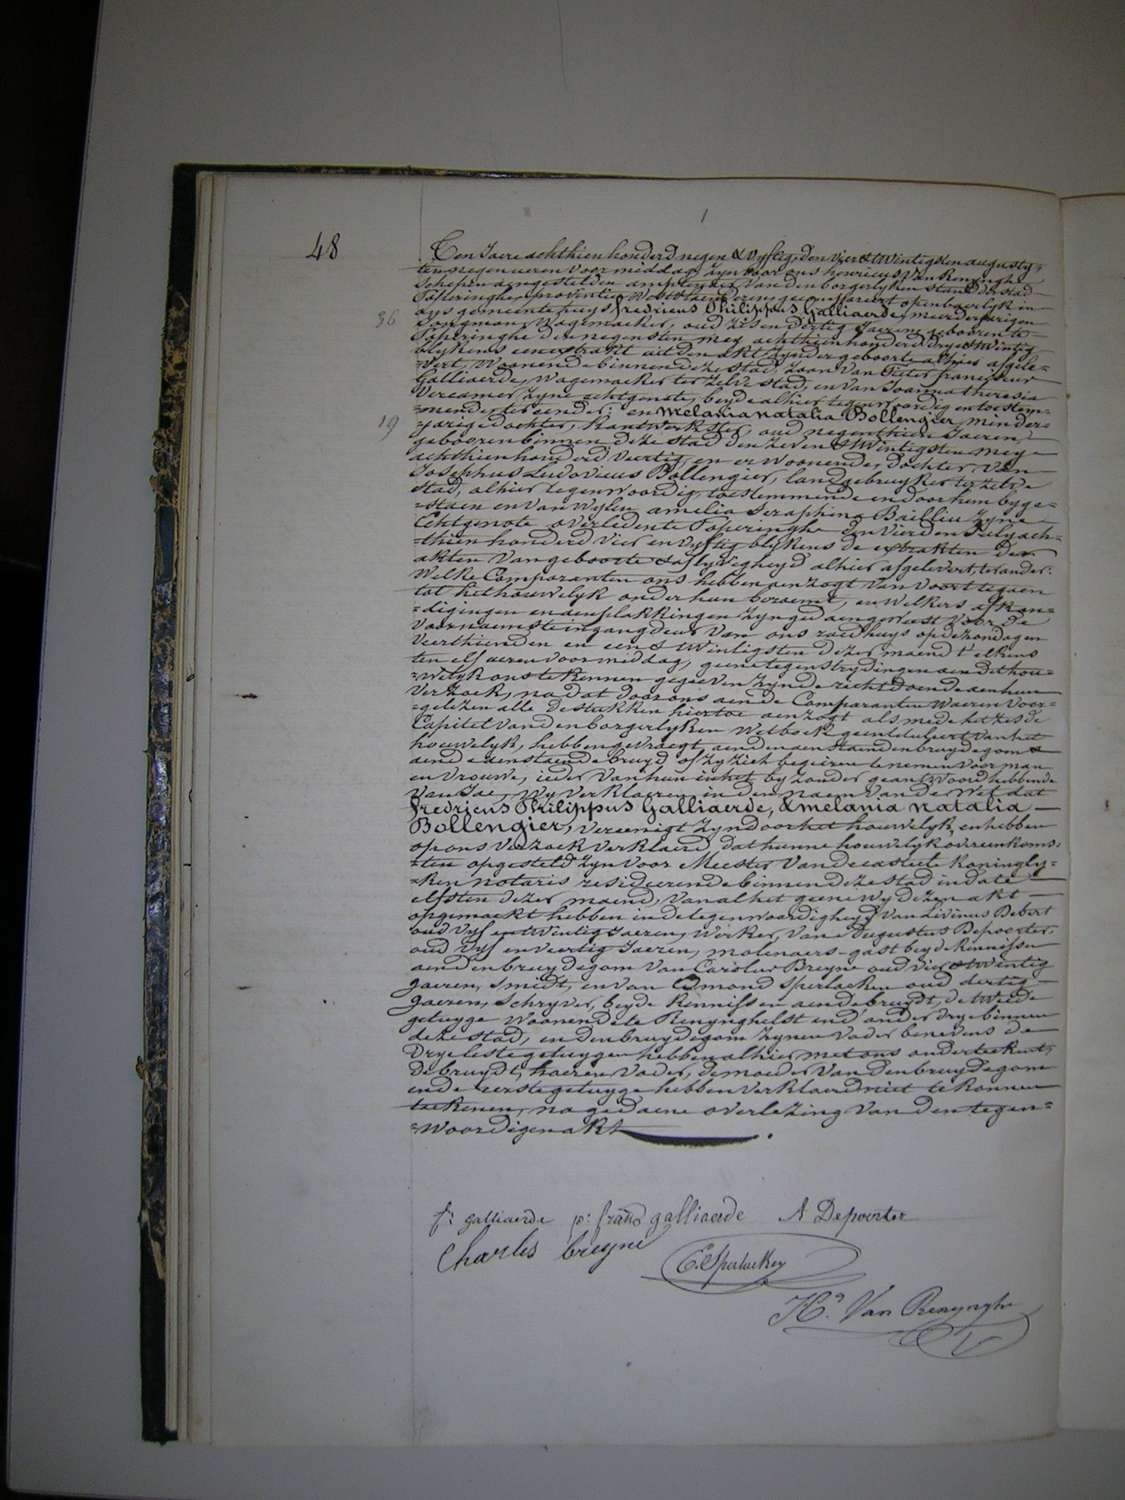 48
Ten Jaere achthien honderd negen & Vyftig, den vier & twintigsten augusty,
ten negen ueren voormiddag, zyn voor ons henricus Van Renynghe
Schepen aengestelden amptenaer van den borgerlyken stand der stad
Poperinghe, provintie Westvlaenderen, gecompareert openbaerlyk in
36
ons gemeentehuys fredricus Philippus Galliaerde, meerderjarigen
Jongman, Wagemaeker, oud zes en dertig Jaeren, gebooren te
Poperinghe den negensten mey achthienhonderd dry & twintig
blykens een extrakt uit den akt zynder geboorte alhier afgele=
=vert, Woonende binnen deze stad, zoon van Pieter franciscus
Galliaerde, Wagemaeker ter zelve stad, en van Joanna theresia
Vercamer zyne echtgenote, beyde alhier tegenwoordig en toestem=
19
=mende ter eender: en melania natalia Bollengier, minder=
=jarige dochter, handwerkster, oud negenthien Jaeren,
gebooren binnen deze stad den zeven & twintigsten mey
achthienhonderd veertig, en er woonende, dochter van
Josephus Ludovicus Bollengier, landgebruyker ter zelve
stad, alhier tegenwoordig, toestemmende en door hem byge=
=staen en van wylen amelia Seraphina Baillieu zyne
Echtgenote overledente Poperinghe den vierden July ach=
=thien honderd vier en vyftig blykens de extrakten der
akten van geboorte & aflyvigheyd alhier afgelevert, ter ander:
Welke Comparanten ons hebben aenzogt van voort te gaen
tot het houwelyk onder hun beraemt, en welkers afkon=
=digingen en aenplakkingen zyn gedaen geweest voor de
voornaemste ingang deur van ons raedhuys op de zondagen
veerthienden en een & twintigsten dezer maend t'elkens
ten elf ueren voormiddag, geene tegenstrydingen aen dit hou=
=welyk ons te kennen gegeven zynde recht doende aen hun
verzoek, na dat door ons aen de Comparanten waeren voor=
=gelezen alle de stukken hiertoe aenzogt als mede het zesde
Capitel van den borgerlyken Wetboek geentituleert van het
houwelyk, hebben gevraegt aen den aenstaenden bruydegom &
aen de aenstaende bruyd of zy zich begeiren te nemen voor man
en vrouwe, ieder van hun in het byzonder geantwoord hebbende
van Jae, Wy verklaeren in den naem van de Wet dat
fredricus Philippus Galliaerde, & melania natalia
Bollengier, vereenigt zyn door het houwelyk, en hebben
op ons verzoek verklaerd, dat hunne houwelyk overeenkoms=
=ten opgesteld zyn voor Meester Vandecasteele Koninglyk=
=ken notaris resideerende binnen deze stad in date
elfsten dezer maend, van al het geene wy dezen akt
opgemaekt hebben in de tegenwoordigheyd van Livinus Debert
oud vyf en twintig Jaeren, Werker, van Augustus Depoorter
oud vyf en veertig Jaeren, molenaers-gast beyde kennissen
aen den bruydegom van Carolus Breyne oud vier & twintig
Jaeren, Smidt, en van Edmond Sperlaeken oud dertig
Jaeren, Schryver, beyde kennissen aen de bruydt, de tweede
getuyge woonende te Renynghelst en d'ander drye binnen
deze stad, en den bruydegom zynen vader benevens de
drye leste getuygen hebben alhier met ons onderteekent,
de bruydt, haeren vader, de moeder van den bruydegom
en de eerste getuyge hebben verklaerd niet te konnen
teekenen, na gedaene overlezing van den tegen=
=woordigen akt.
fr galliaerde p: frans galliaerde A Depoorter
Charles breyne
E. Sperlaeken
Hri Van Renynghe